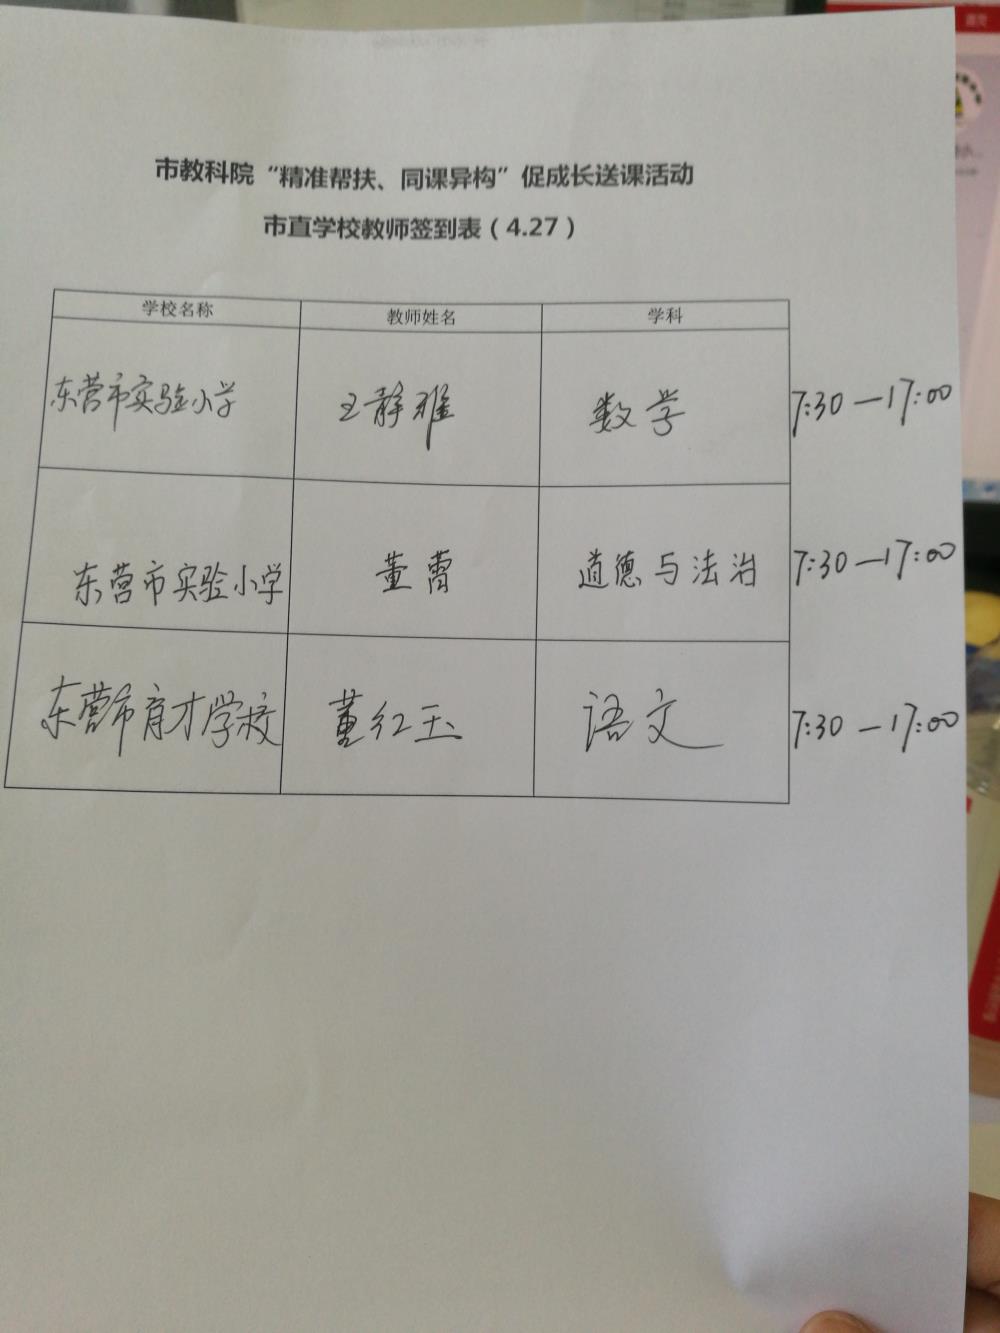 市教科院“精准帮扶、同课异构”促成长送课活动
市直学校教师签到表（4.27）
学校名称 教师姓名 学科
东营市实验小学 王静雅 数学 7:30—17:00
东营市实验小学 董蕾 道德与法治 7:30—17:00
东营市育才学校 董红玉 语文 7:30—17:00